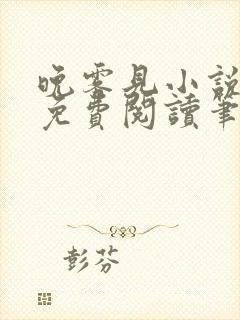 晚零見小說
免費閱讀筆
彭芬